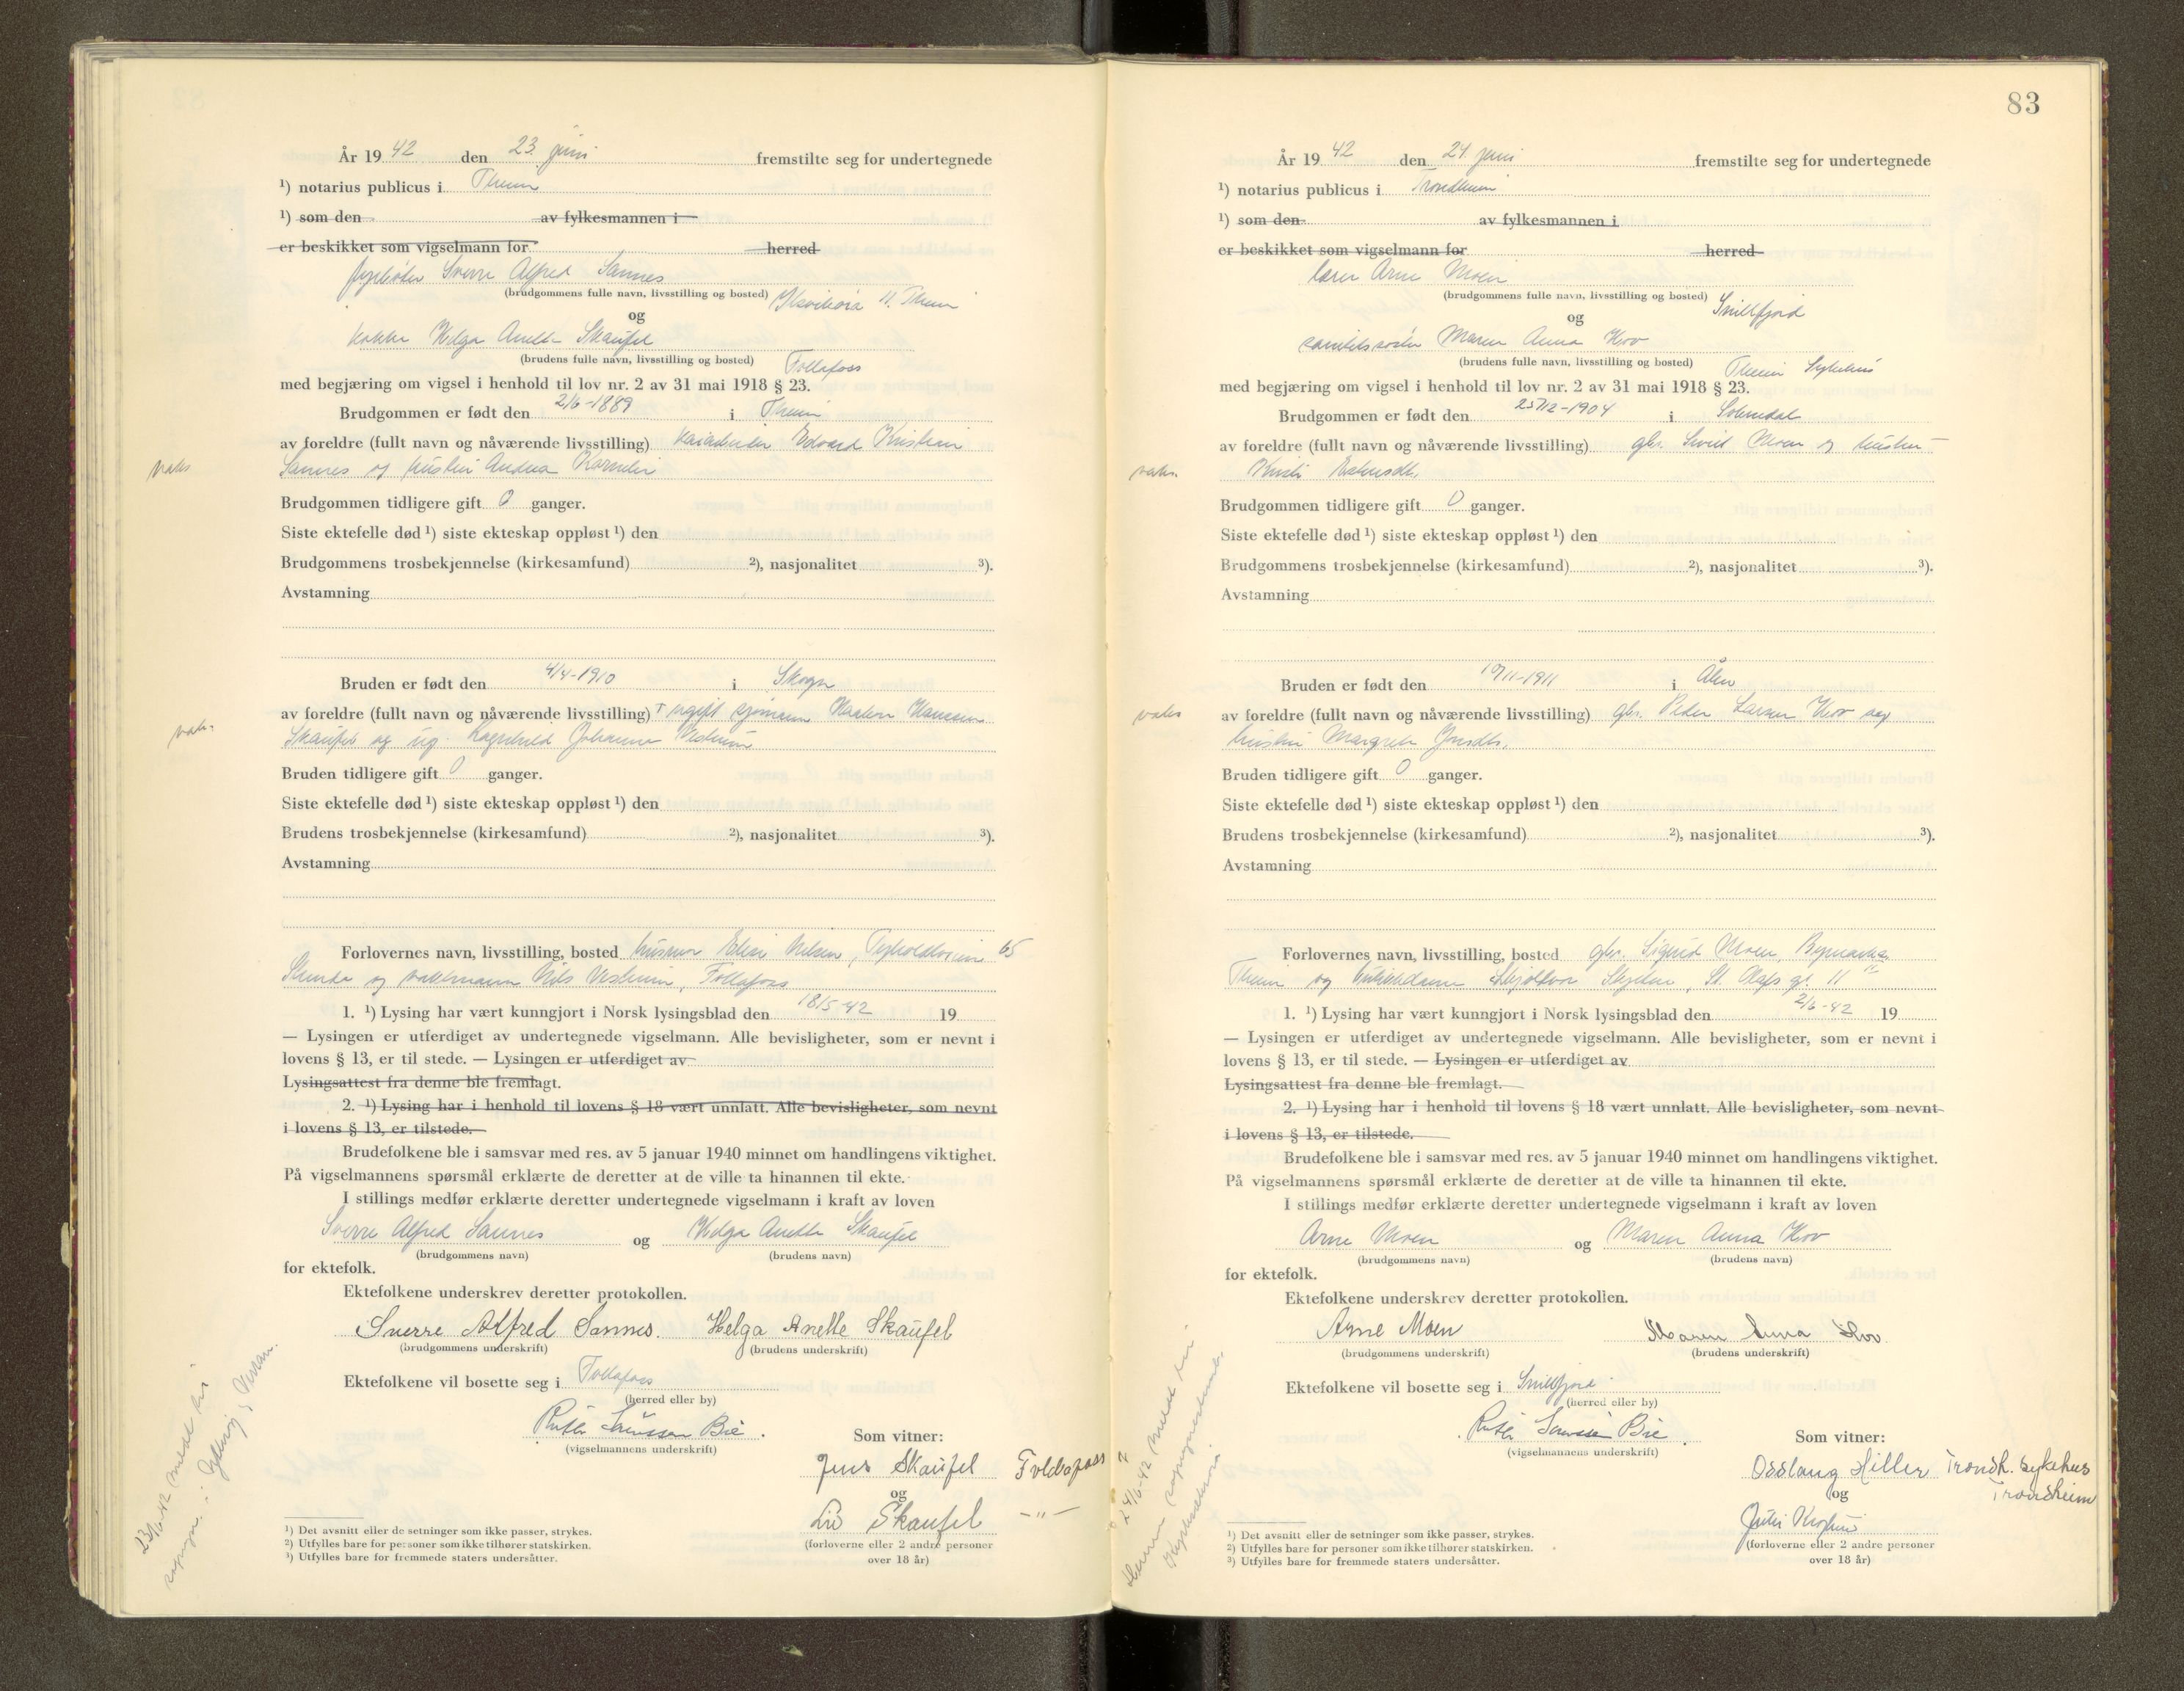 År 19 42 den 23. juni fremstilte seg for undertegnede
¹) notarius publicus i Thein
¹) som den av fylkesmannen i
er beskikket som vigselmann for herred
Sverre Alfred Sannes
(brudgommens fulle navn, livsstilling og bosted)
og
kokke Helga Anette Skaufel
(brudens fulle navn, livsstilling og bosted) Follafoss
med begjæring om vigsel i henhold til lov nr. 2 av 31 mai 1918 § 23.
Brudgommen er født den 2/6-1889 i Thein
av foreldre (fullt navn og nåværende livsstilling) kaiarbeider Edvard Kristian
Sannes og hustru Andrea
vaks
Brudgommen tidligere gift 0 ganger.
Siste ektefelle død ¹) siste ekteskap oppløst ¹) den
Brudgommens trosbekjennelse (kirkesamfund) ²), nasjonalitet ³).
Avstamning
Bruden er født den 4/4-1910 i Skogn
av foreldre (fullt navn og nåværende livsstilling) ugift sjømann Haakon Hanssen
Skaufel og ug. Ragnhild Johanna
vaks
Bruden tidligere gift 0 ganger.
Siste ektefelle død ¹) siste ekteskap oppløst ¹) den
Brudens trosbekjennelse (kirkesamfund) ²), nasjonalitet ³).
Avstamning
Forlovernes navn, livsstilling, bosted husmor Elise Nilsen, 65
Strinda og Nils Follafoss
1. ¹) Lysing har vært kunngjort i Norsk lysingsblad den 18/5-42 19
— Lysingen er utferdiget av undertegnede vigselmann. Alle bevisligheter, som er nevnt i
lovens § 13, er til stede. — Lysingen er utferdiget av
Lysingsattest fra denne ble fremlagt.
2. ¹) Lysing har i henhold til lovens § 18 vært unnlatt. Alle bevisligheter, som nevnt
i lovens § 13, er tilstede.
Brudefolkene ble i samsvar med res. av 5 januar 1940 minnet om handlingens viktighet.
På vigselmannens spørsmål erklærte de deretter at de ville ta hinannen til ekte.
I stillings medfør erklærte deretter undertegnede vigselmann i kraft av loven
Sverre Alfred Sannes og Helga Anette Skaufel
(brudgommens navn) (brudens navn)
for ektefolk.
Ektefolkene underskrev deretter protokollen.
Sverre Alfred Sannes. Helga Anette Skaufel
(brudgommens underskrift) (brudens underskrift)
Ektefolkene vil bosette seg i Follafoss
(herred eller by)
Bie.
(vigselmannens underskrift)
Som vitner:
Jens Skaufel Follafoss
og
Liv Skaufel —"—
(forloverne eller 2 andre personer
over 18 år)
23/6-42 meldt til
sognepr. i Verran.
¹) Det avsnitt eller de setninger som ikke passer, strykes.
²) Utfylles bare for personer som ikke tilhører statskirken.
³) Utfylles bare for fremmede staters undersåtter.
83
År 19 42 den 24. juni fremstilte seg for undertegnede
¹) notarius publicus i Trondheim
¹) som den av fylkesmannen i
er beskikket som vigselmann for herred
lærer Arne Moen
(brudgommens fulle navn, livsstilling og bosted) Snillfjord
og
Maren Anna Hov
(brudens fulle navn, livsstilling og bosted) Sykehus
med begjæring om vigsel i henhold til lov nr. 2 av 31 mai 1918 § 23.
Brudgommen er født den 25/12-1904 i
av foreldre (fullt navn og nåværende livsstilling) gbr. Moen og hustru
vaks.
Brudgommen tidligere gift 0 ganger.
Siste ektefelle død ¹) siste ekteskap oppløst ¹) den
Brudgommens trosbekjennelse (kirkesamfund) ²), nasjonalitet ³).
Avstamning
Bruden er født den i Ålen
av foreldre (fullt navn og nåværende livsstilling) gbr. Peder Larsen Hov og
hustru Margrete
vaks
Bruden tidligere gift 0 ganger.
Siste ektefelle død ¹) siste ekteskap oppløst ¹) den
Brudens trosbekjennelse (kirkesamfund) ²), nasjonalitet ³).
Avstamning
Forlovernes navn, livsstilling, bosted gbr. Sigurd Moen,
og St. Olafs gt. 11
1. ¹) Lysing har vært kunngjort i Norsk lysingsblad den 2/6-42 19
— Lysingen er utferdiget av undertegnede vigselmann. Alle bevisligheter, som er nevnt i
lovens § 13, er til stede. — Lysingen er utferdiget av
Lysingsattest fra denne ble fremlagt.
2. ¹) Lysing har i henhold til lovens § 18 vært unnlatt. Alle bevisligheter, som nevnt
i lovens § 13, er tilstede.
Brudefolkene ble i samsvar med res. av 5 januar 1940 minnet om handlingens viktighet.
På vigselmannens spørsmål erklærte de deretter at de ville ta hinannen til ekte.
I stillings medfør erklærte deretter undertegnede vigselmann i kraft av loven
Arne Moen og Maren Anna Hov
(brudgommens navn) (brudens navn)
for ektefolk.
Ektefolkene underskrev deretter protokollen.
Arne Moen Maren Anna Hov
(brudgommens underskrift) (brudens underskrift)
Ektefolkene vil bosette seg i Snillfjord
(herred eller by)
Bie.
(vigselmannens underskrift)
Som vitner:
Aslaug Hiller Trondh. sykehus
og Trondheim
(forloverne eller 2 andre personer
over 18 år)
24/6-42 meldt til
Hemne
¹) Det avsnitt eller de setninger som ikke passer, strykes.
²) Utfylles bare for personer som ikke tilhører statskirken.
³) Utfylles bare for fremmede staters undersåtter.